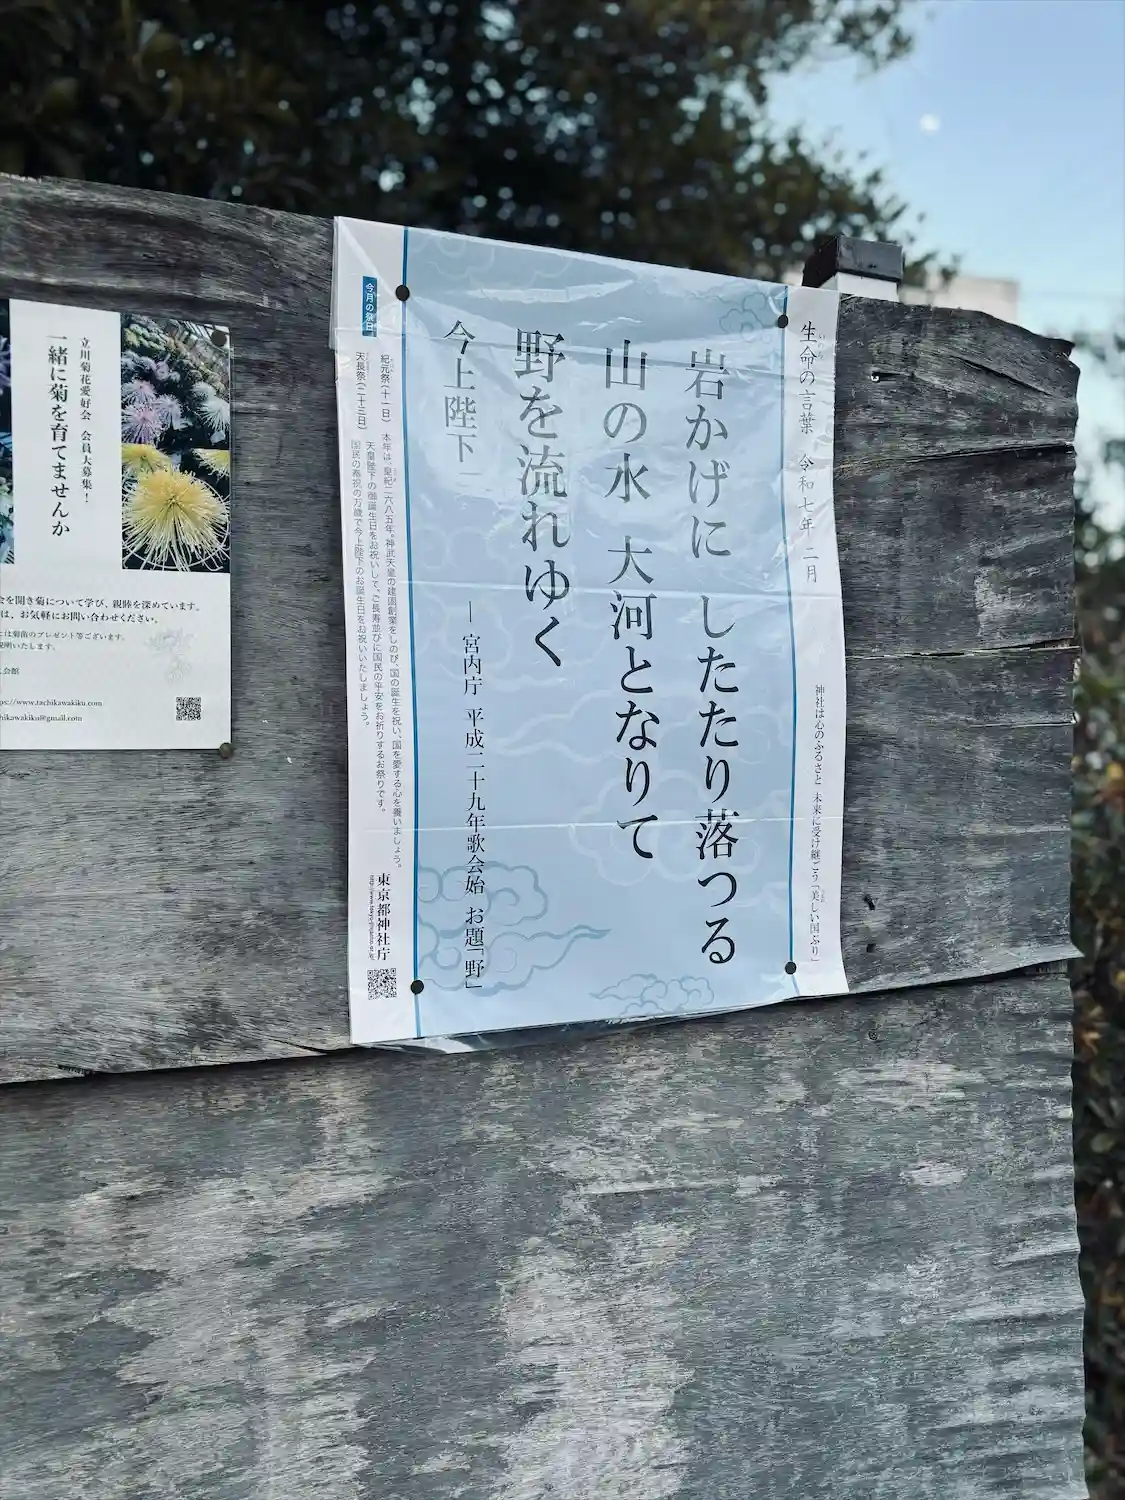 生命の言葉　令和七年 二月
神社は心のふるさと　未来に受け継ごう「美しい国ぶり」
岩かげに　したたり落つる
山の水　大河となりて
野を流れゆく
今上陛下
― 宮内庁　平成二十九年歌会始　お題「野」
今月の祭日
紀元祭（十一日）
本年は、皇紀二六八五年。神武天皇の建国創業をしのび、国の誕生を祝い、国を愛する心を養いましょう。
天長祭（二十三日）
天皇陛下の御誕生日をお祝いして、ご長寿並びに国民の平安をお祈りするお祭りです。
国民の奉祝の万歳で今上陛下のお誕生日をお祝いいたしましょう。
東京都神社庁
立川菊花愛好会　会員大募集！
一緒に菊を育てませんか
会を開き菊について学び、親睦を深めています。
は、お気軽にお問い合わせください。
には菊苗のプレゼント等ございます。
説明いたします。
会館
ps://www.tachikawakiku.com
hikawakiku@gmail.com